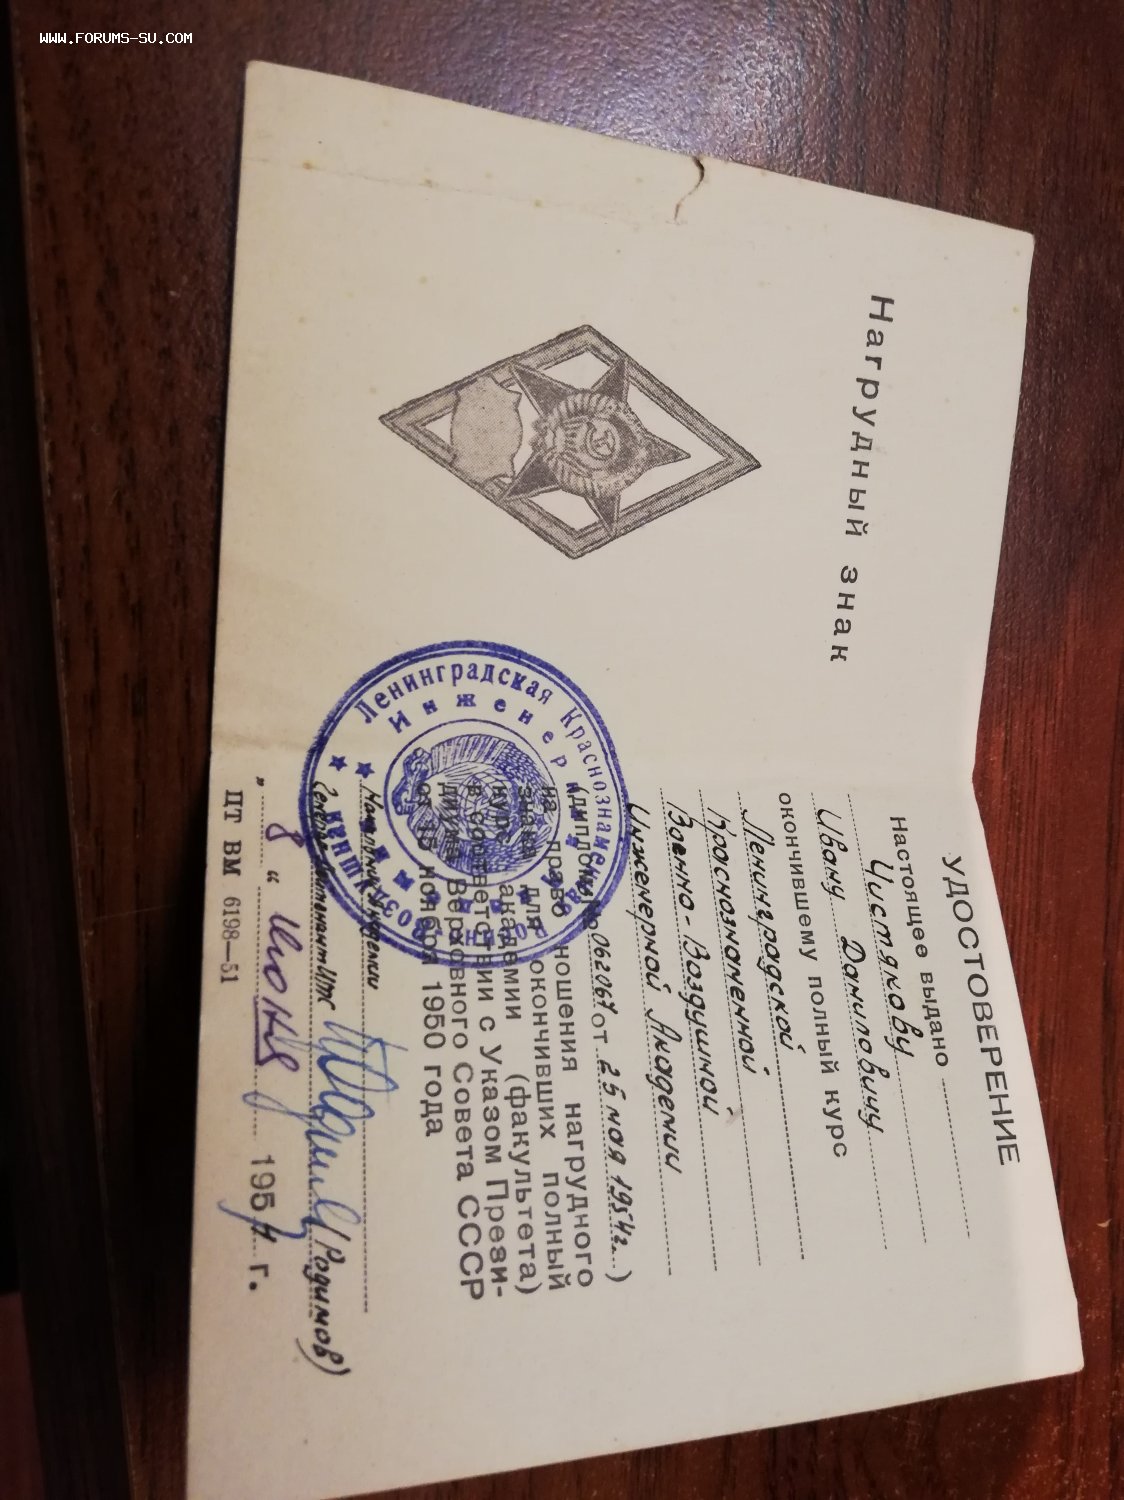 WWW.FORUMS-SU.COM
Нагрудный знак
УДОСТОВЕРЕНИЕ
Настоящее выдано
Чистякову
Ивану Даниловичу
окончившему полный курс
Ленинградской
Краснознаменной
Военно-Воздушной
Инженерной Академии
(диплом № 062067 от 25 мая 1954 г.)
на право ношения нагрудного
знака для окончивших полный
курс академии (факультета)
в соответствии с Указом Прези-
диума Верховного Совета СССР
от 15 ноября 1950 года
Начальник Академии
Генерал-лейтенант ИТС (Родимов)
„ 8 “ Июня 1954 г.
ПТ ВМ 6198—51
Ленинградская Краснознаменная